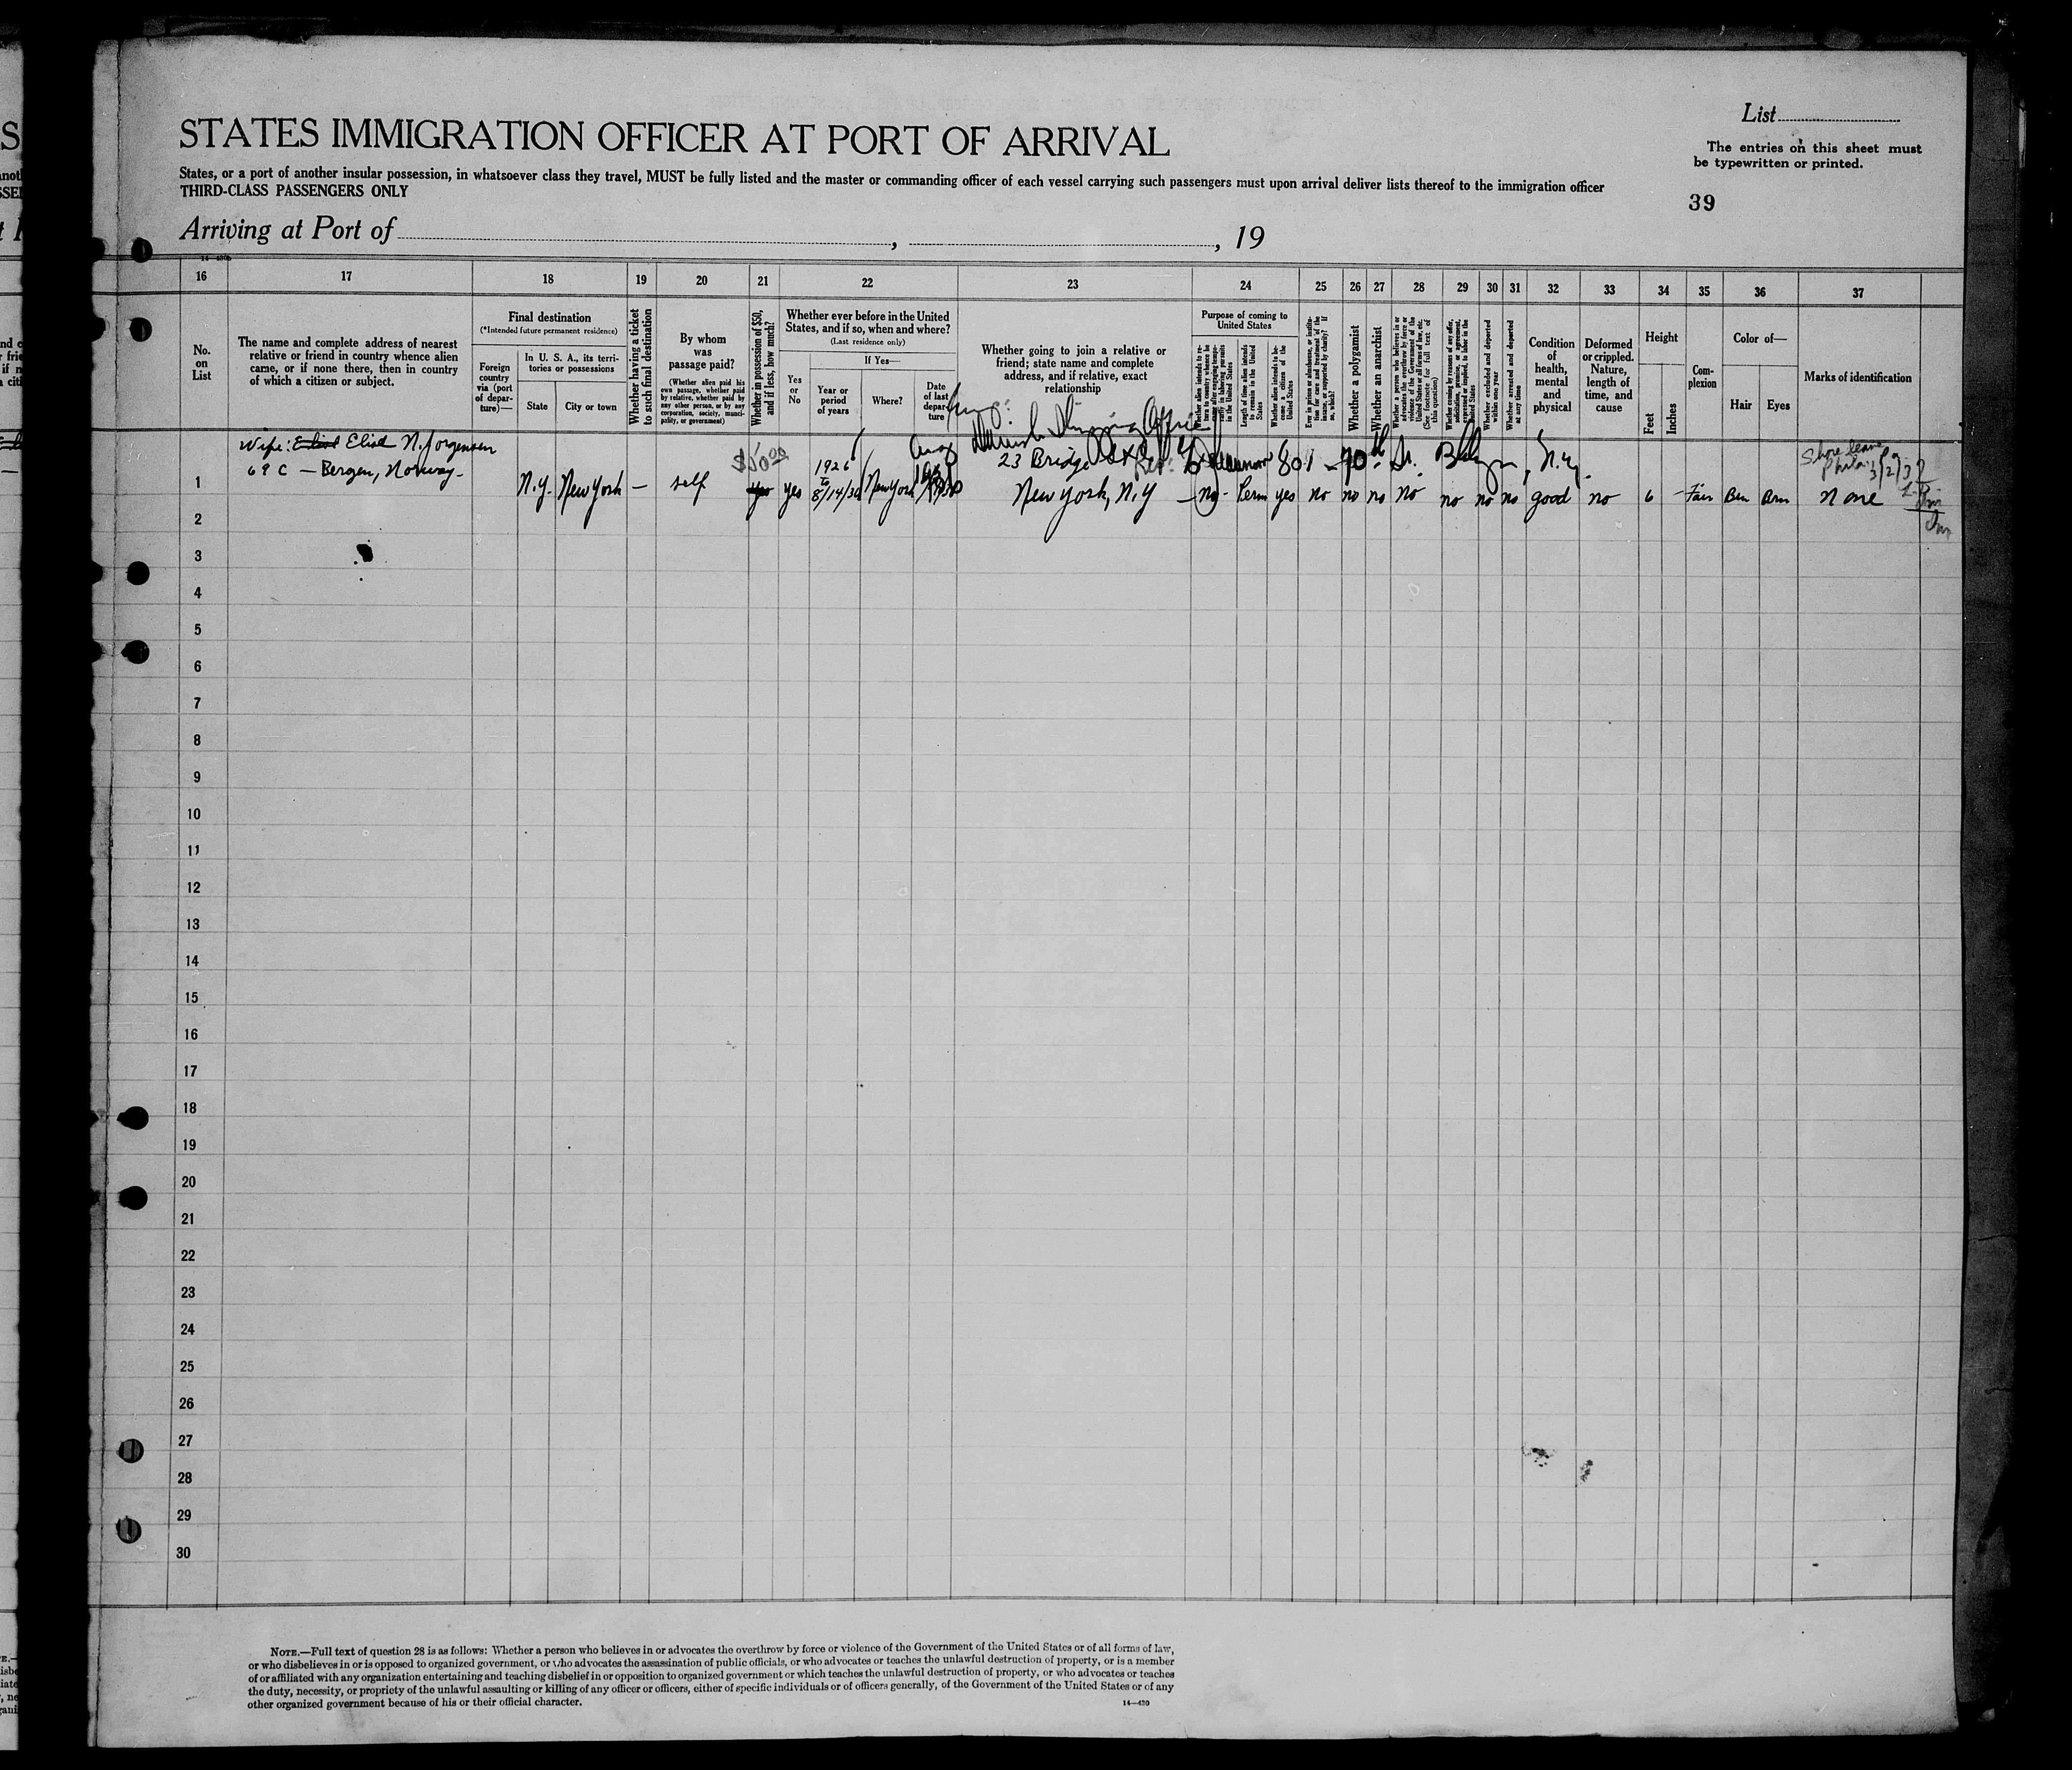 STATES IMMIGRATION OFFICER AT PORT OF ARRIVAL
List
The entries on this sheet must
be typewritten or printed.
States, or a port of another insular possession, in whatsoever class they travel, MUST be fully listed and the master or commanding officer of each vessel carrying such passengers must upon arrival deliver lists thereof to the immigration officer
THIRD-CLASS PASSENGERS ONLY
39
Arriving at Port of , , 19
16 17 18 19 20 21 22 23 24 25 26 27 28 29 30 31 32 33 34 35 36 37
No. on List
The name and complete address of nearest
relative or friend in country whence alien
came, or if none there, then in country
of which a citizen or subject.
Final destination
(*Intended future permanent residence)
Foreign country via (port of departure)—
In U. S. A., its territories or possessions
State
City or town
Whether having a ticket to such final destination
By whom was passage paid?
(Whether alien paid his own passage, whether paid by relative, whether paid by any other person, or by any corporation, society, municipality, or government)
Whether in possession of $50, and if less, how much?
Whether ever before in the United States, and if so, when and where?
(Last residence only)
Yes or No
If Yes—
Year or period of years
Where?
Date of last departure
Whether going to join a relative or
friend; state name and complete
address, and if relative, exact
relationship
Purpose of coming to United States
Whether alien intends to return to country whence he came after engaging temporarily in laboring pursuits in the United States
Length of time alien intends to remain in the United States
Whether alien intends to become a citizen of the United States
Ever in prison or almshouse, or institution for care and treatment of the insane, or supported by charity? If so, which?
Whether a polygamist
Whether an anarchist
Whether a person who believes in or advocates the overthrow by force or violence of the Government of the United States or all forms of law, etc. (See footnote for full text of this question)
Whether coming by reasons of any offer, solicitation, promise, or agreement, expressed or implied, to labor in the United States
Whether excluded and deported within one year
Whether arrested and deported at any time
Condition of health, mental and physical
Deformed or crippled. Nature, length of time, and cause
Height
Feet
Inches
Complexion
Color of—
Hair
Eyes
Marks of identification
Wife: Elise N. Jorgensen
69 C — Bergen, Norway
Shipping Office
23 Bridge St. 801 - 70th St. Bklyn, N.Y.
Shore leave
Phila. Pa
1 N.Y. New York — self $50.00 yes yes 1926 to 8/14/30 New York Aug New York, N.Y — no - Perm yes no no no no no no no good no 6 - Fair Brn Brn none
2
3
4
5
6
7
8
9
10
11
12
13
14
15
16
17
18
19
20
21
22
23
24
25
26
27
28
29
30
NOTE.—Full text of question 28 is as follows: Whether a person who believes in or advocates the overthrow by force or violence of the Government of the United States or of all forms of law,
or who disbelieves in or is opposed to organized government, or who advocates the assassination of public officials, or who advocates or teaches the unlawful destruction of property, or is a member
of or affiliated with any organization entertaining and teaching disbelief in or opposition to organized government or which teaches the unlawful destruction of property, or who advocates or teaches
the duty, necessity, or propriety of the unlawful assaulting or killing of any officer or officers, either of specific individuals or of officers generally, of the Government of the United States or of any
other organized government because of his or their official character.
14—430